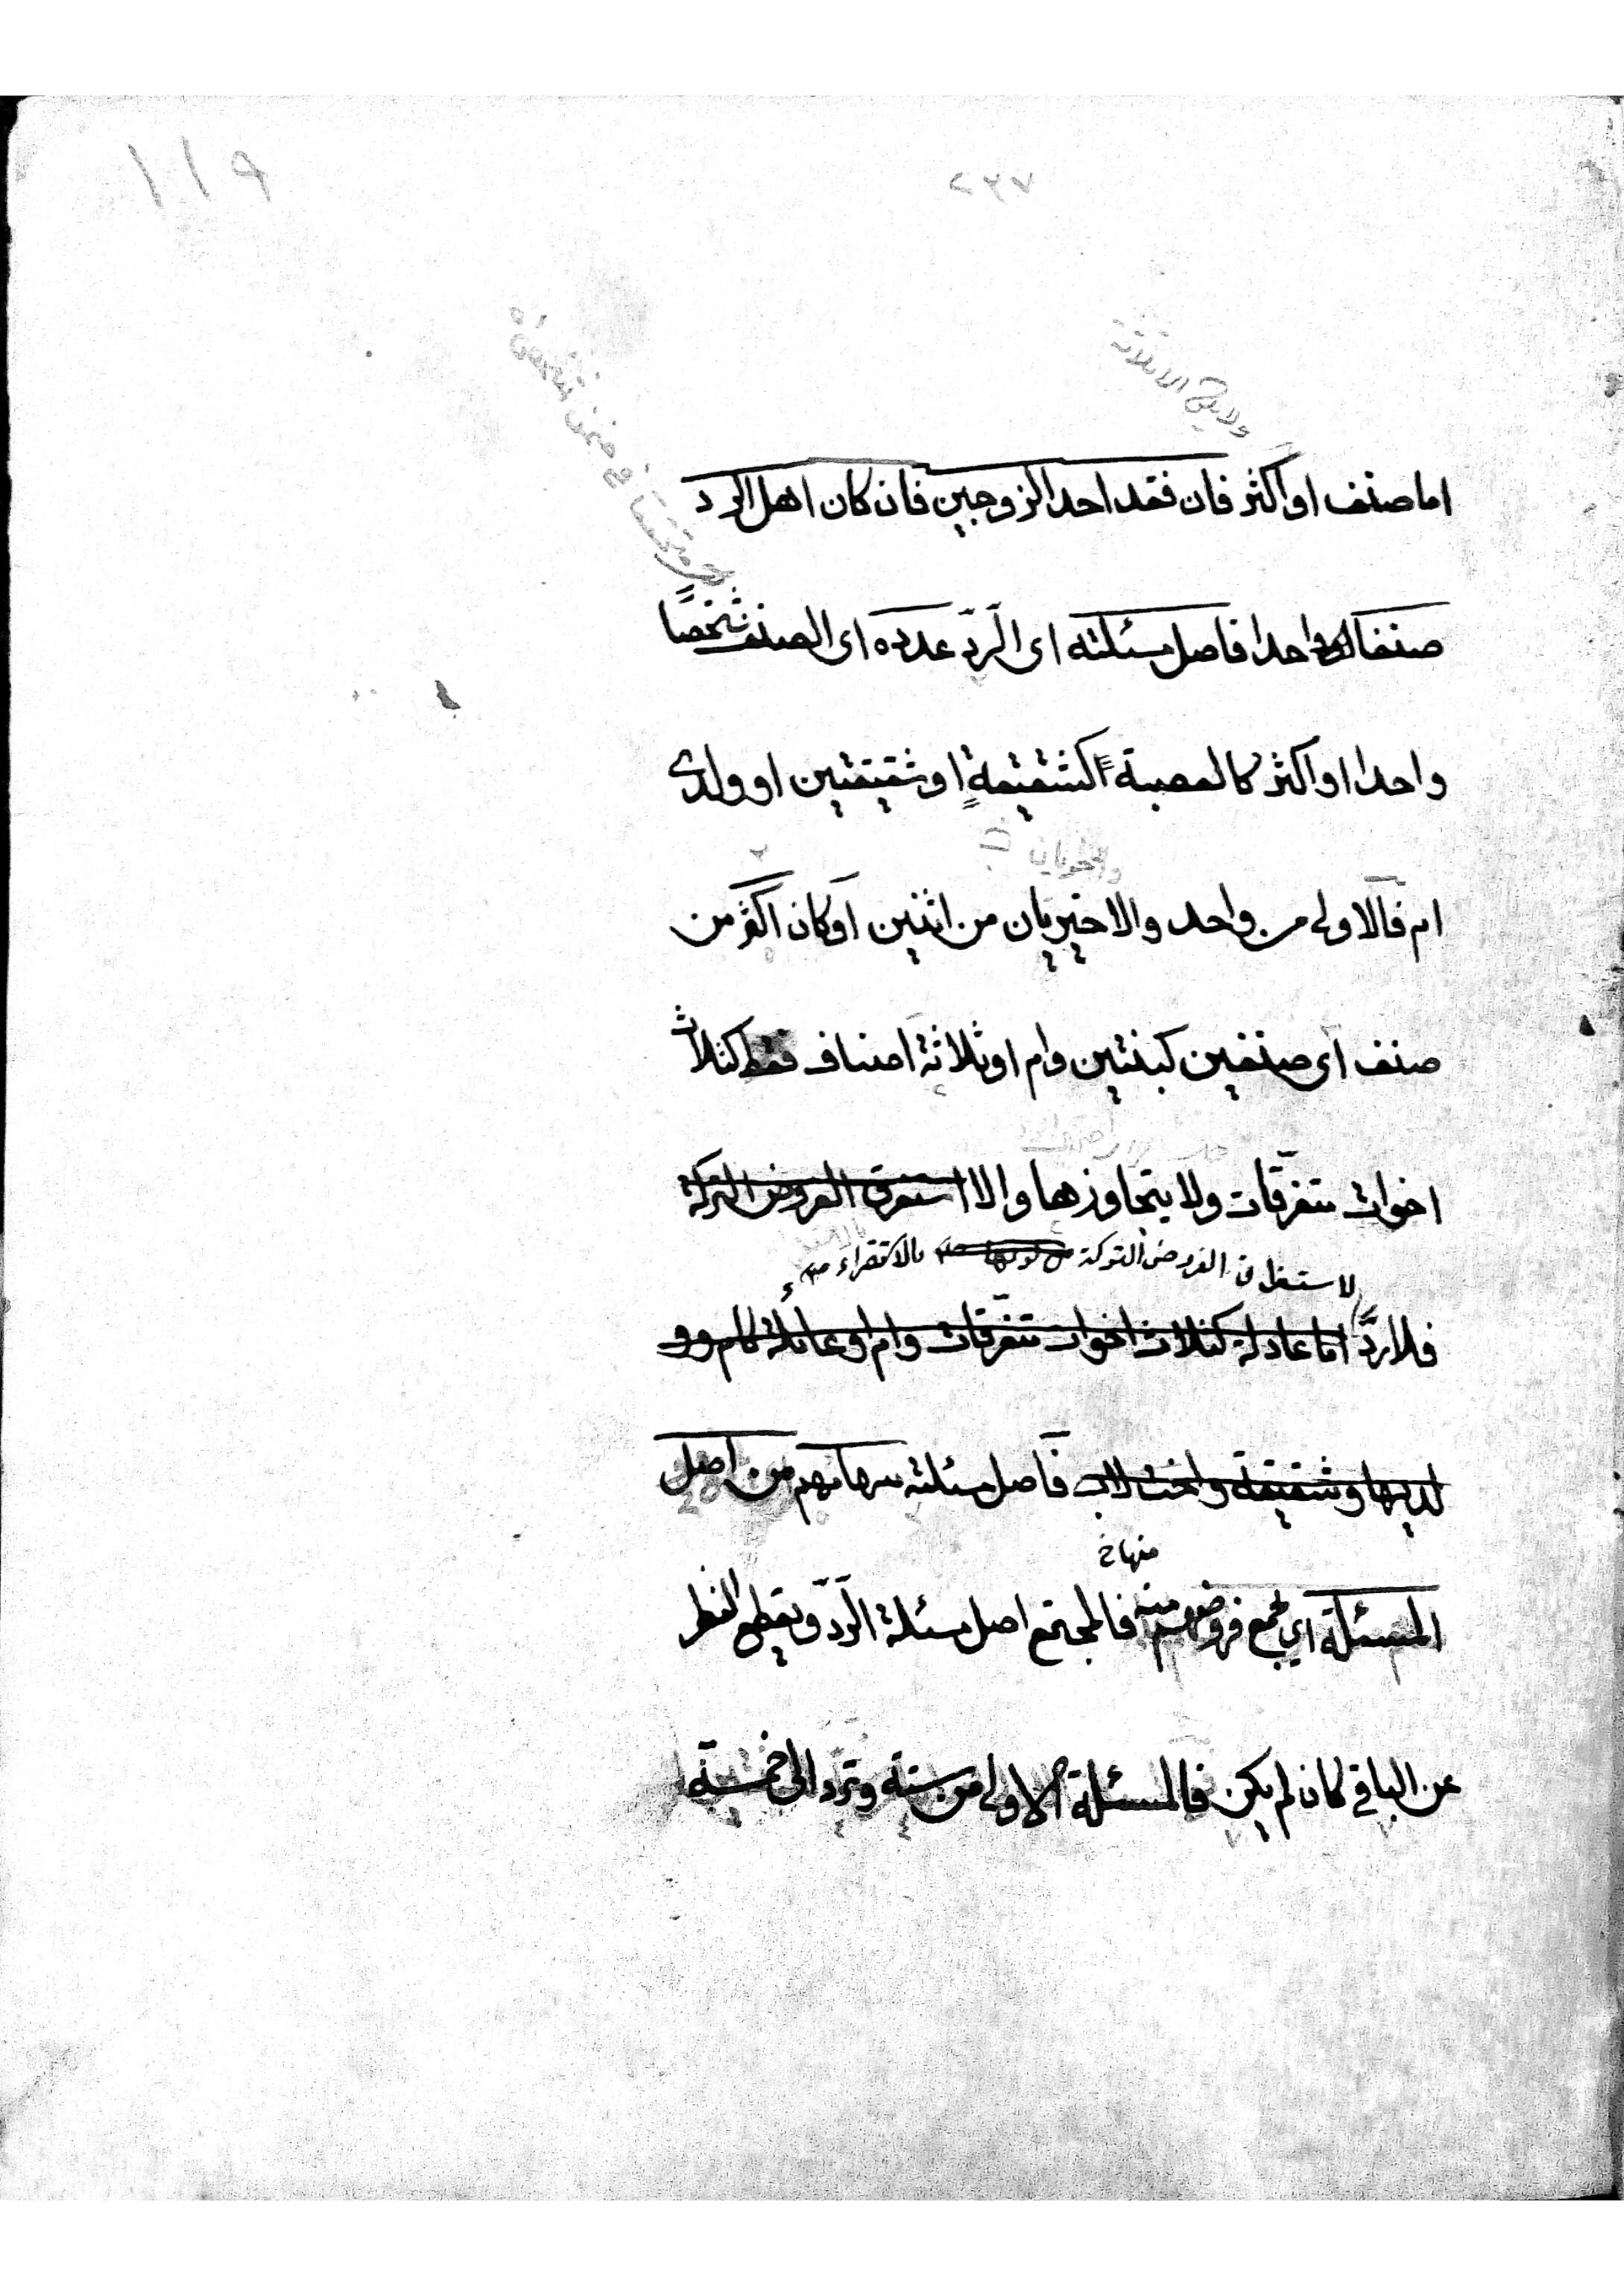 ١١٩
٢٣٧
ولا يقع الا ثلاثة
اما صنف او اكثر فان فقد احد الزوجين فان كان اهل الرد
صنفا واحدا فاصل مسئلته اى الرّدّ عدده اى الصنف شخصًا
واحدا او اكثر كالعصبة كشقيقةٍ او شقيقتين او ولدى
ام فالاولى من واحد والاخيريان من اثنين او كان اكثر من
صنف اى صنفين كبنتين وام او ثلاثة اصناف فقط كثلاث
اخوات متفرّقات ولا يتجاوزها والا استغرق الفروض التركة
لاستغراق الفروض التركة بالاستقراء
فلا ردَّ اما عادلة كثلاث اخوات متفرّقات وام او عائلة كام وو
لديها وشقيقة واخت لاب فاصل مسئلته سهامهم من اصل
منها
المسئلة اي مجمع فروضهم فالمجتمع اصل مسئلة الرّدّ ويقطع النظر
عن الباقي كان لم يكن فالمسئلة الاولى من ستة وتردّ الى خمسة